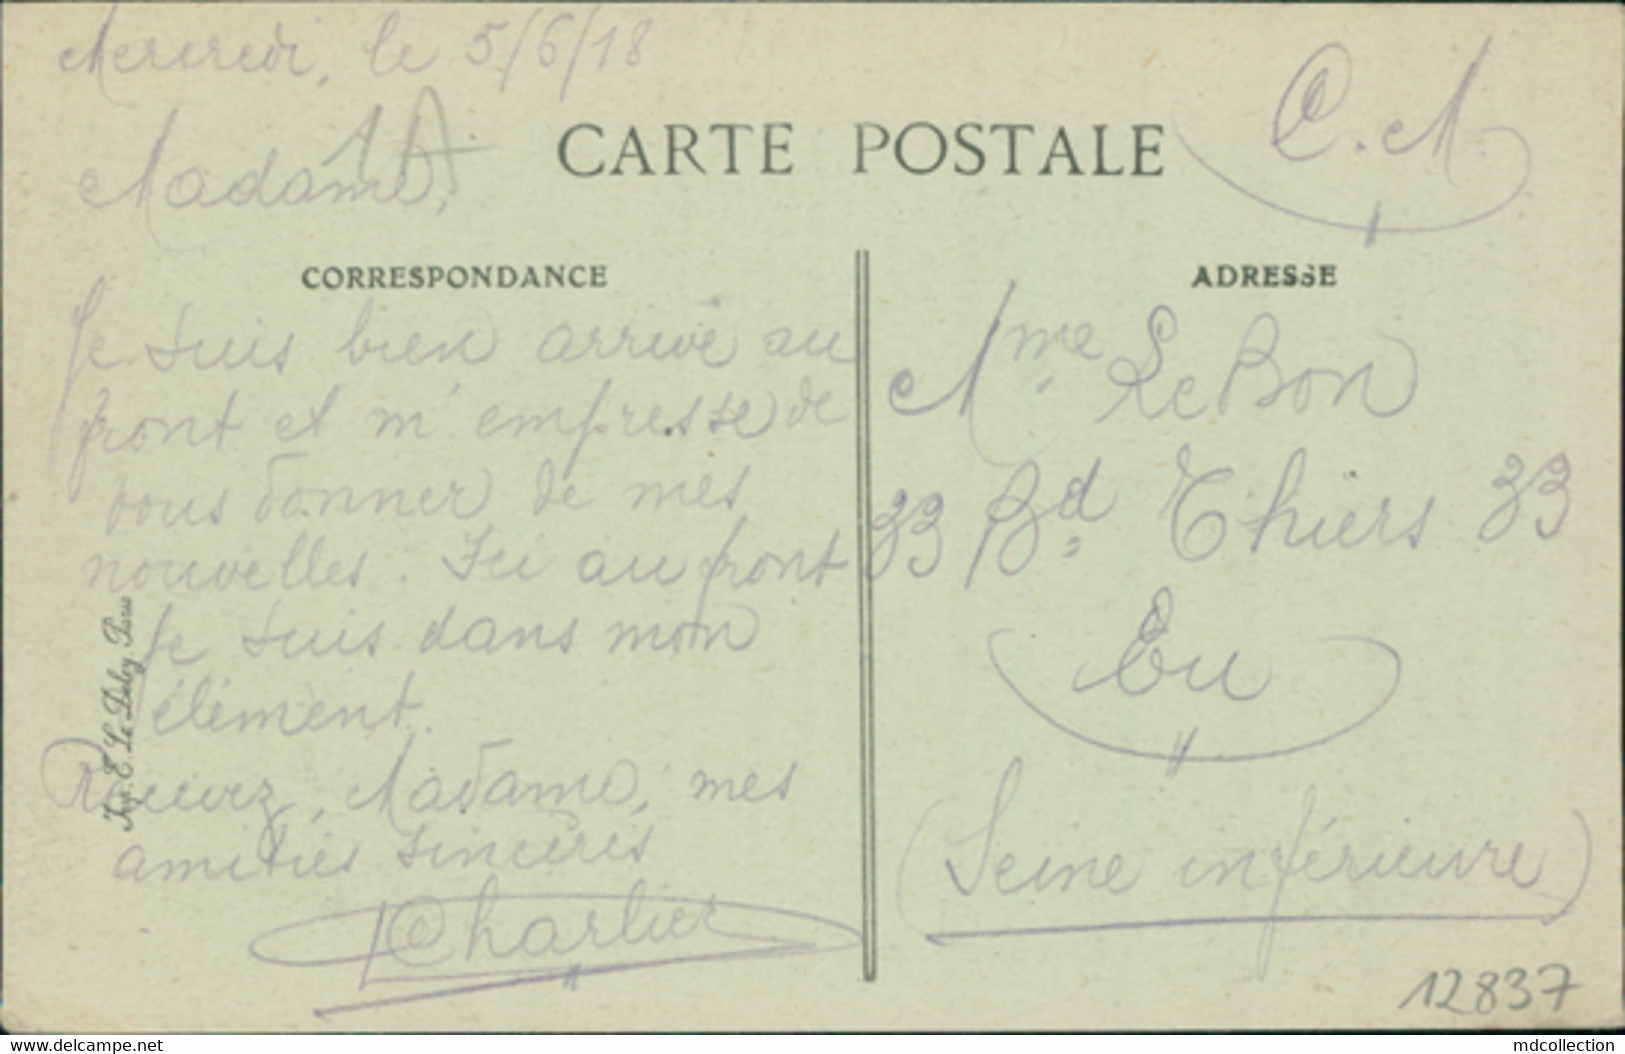 Mercredi, le 5/6/18
1A
Madame,
CARTE POSTALE
C.M.
CORRESPONDANCE
Je suis bien arrivé au
front et m'empresse de
vous donner de mes
nouvelles. Ici au front
Je suis dans mon
élément.
Recevez, Madame, mes
amitiés sincères
Charlier
Imp. E. Le Deley, Paris
ADRESSE
Mme Le Bon
33 Bd Thiers 33
Eu
(Seine inférieure)
12837
www.delcampe.net
mdcollection